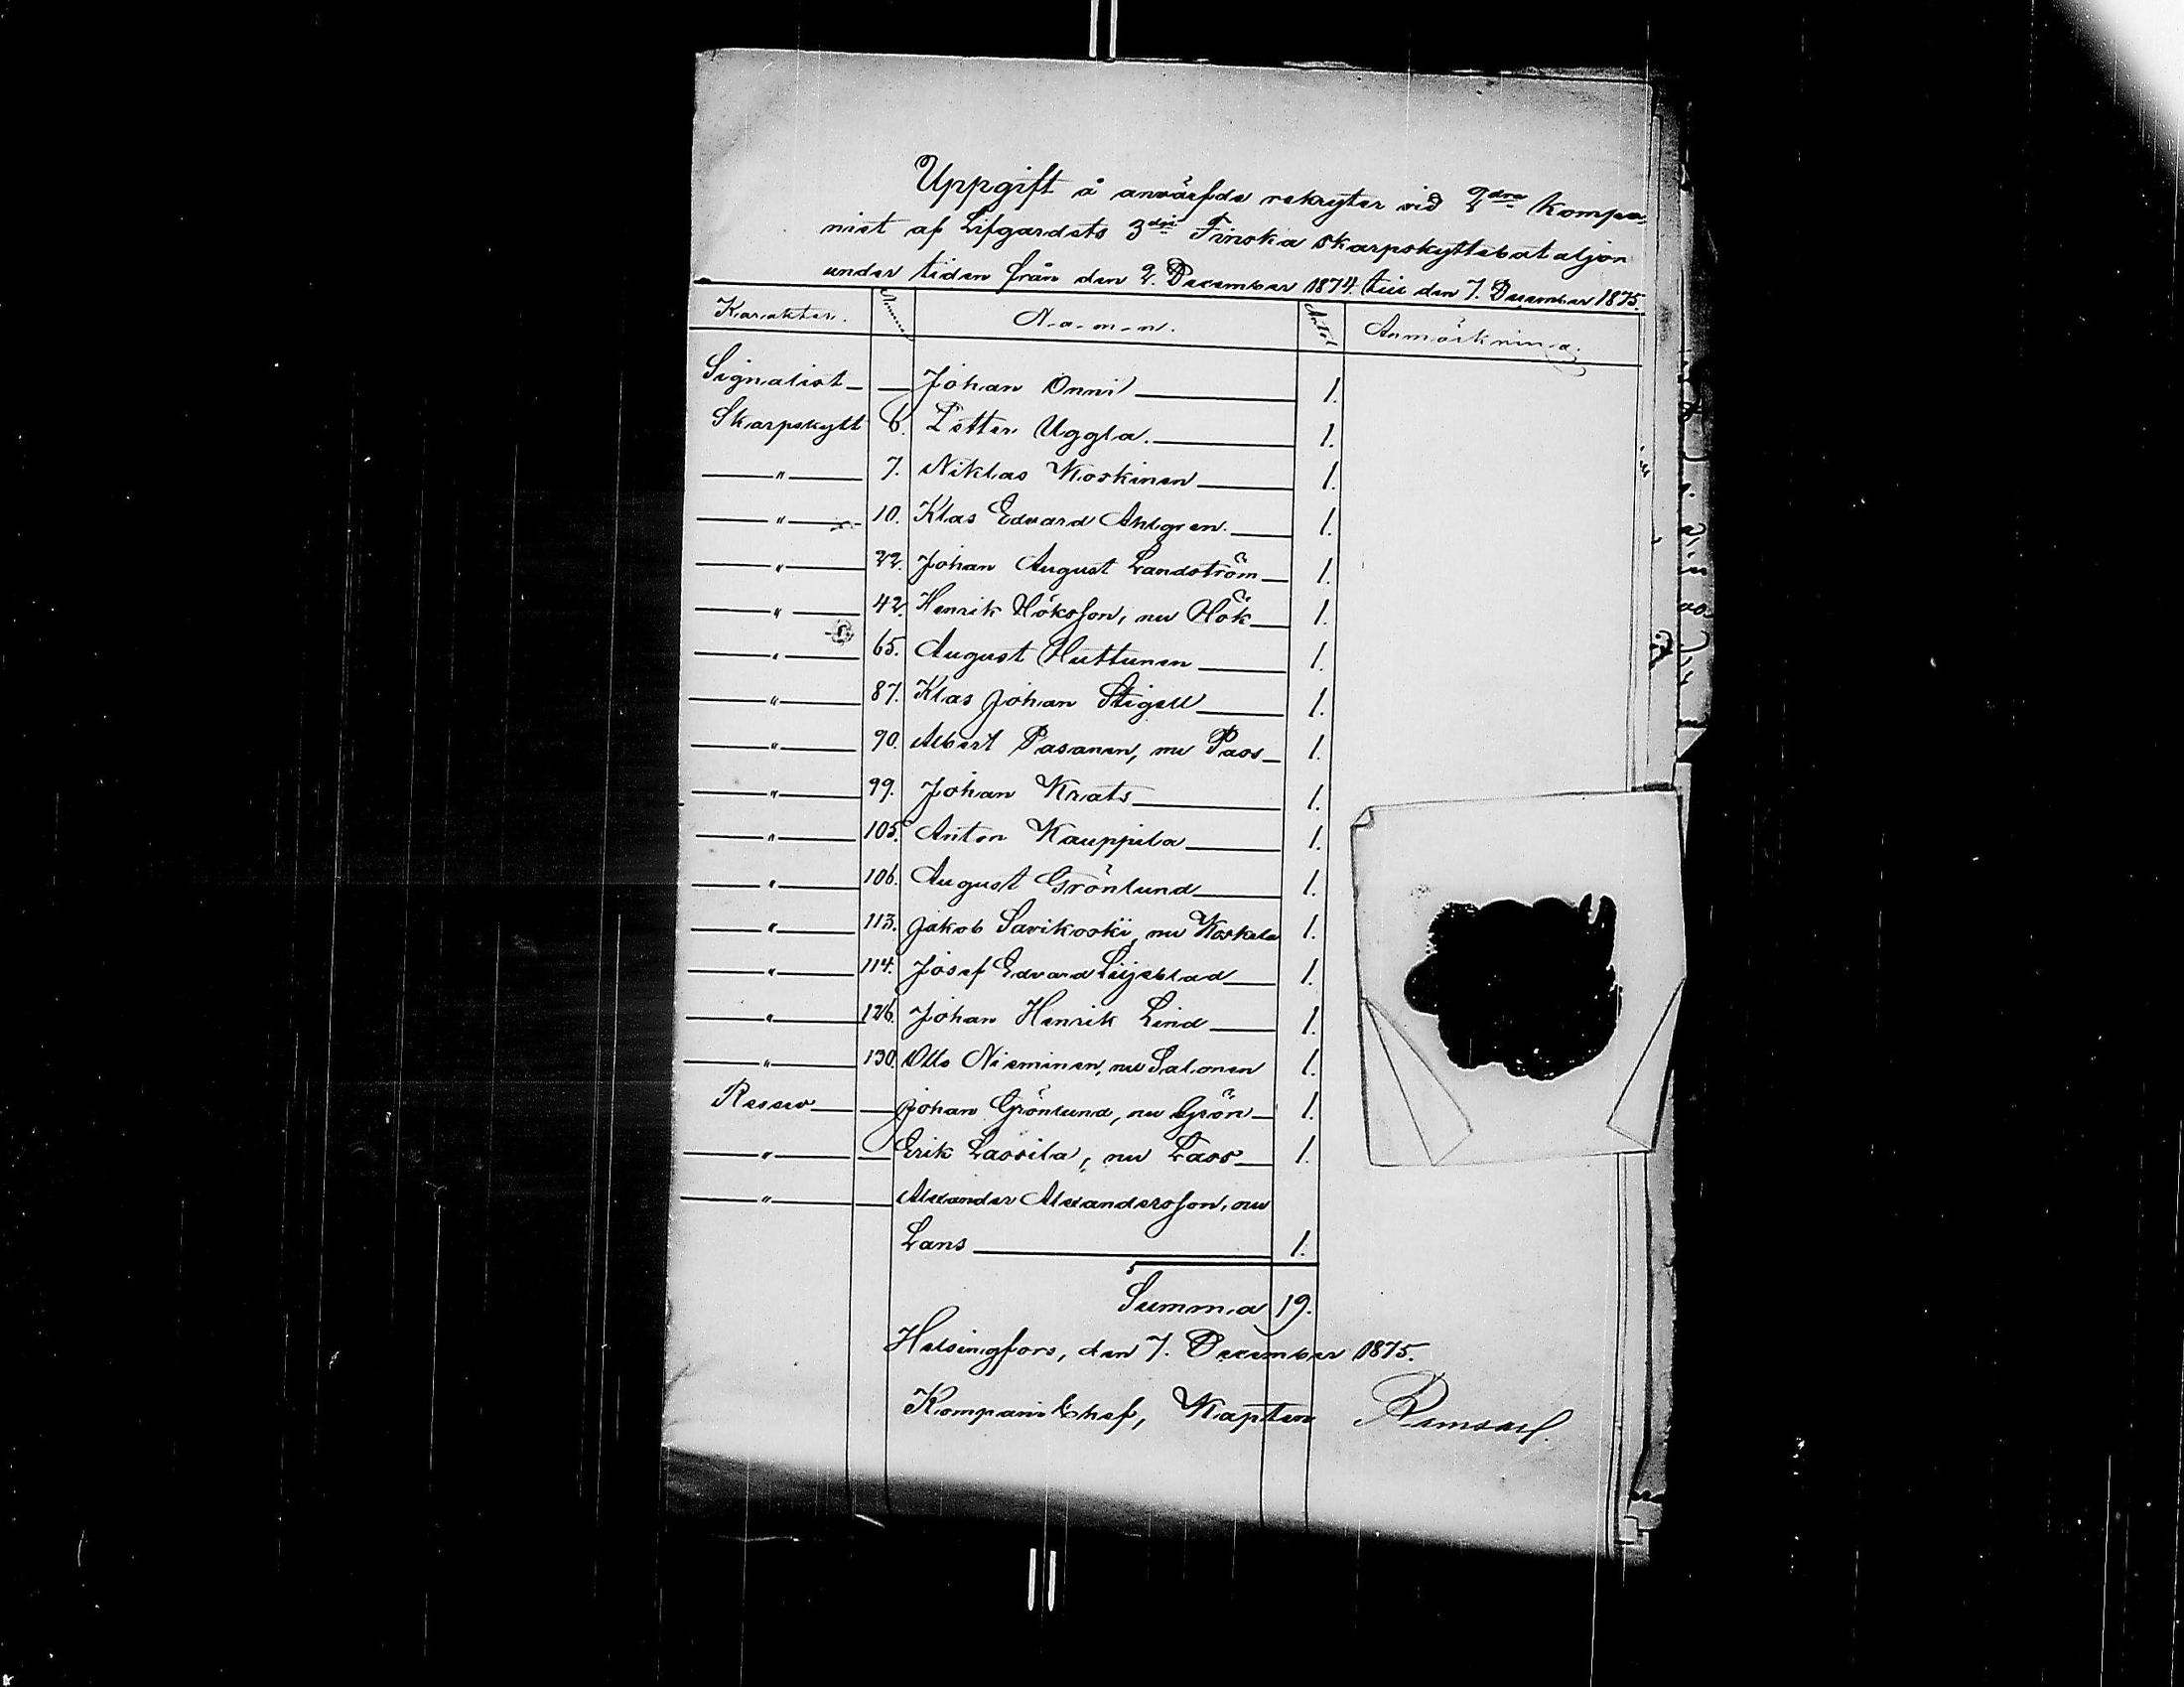 Uppgift å anvärfde rekryter vid 2dra Kompa-
niet af Lifgardets 3dje Finska skarpskyttebataljon
under tiden från den 2. December 1874. till den 7. December 1875.
Karakter. Nummer Namn. Antal Anmärkning.
Signalist — — Johan Onni 1.
Skarpskytt 6. Petter Uggla. 1.
—"— 7. Niklas Koskinen 1.
—"— 10. Klas Edvard Ahlgren. 1.
—"— 22. Johan August Landström 1.
—"— 42. Henrik Höksson, nu Hök 1.
—"— 65. August Huttunen 1.
—"— 87. Klas Johan Stigell 1.
—"— 90. Albert Pasanen, nu Paas 1.
—"— 99. Johan Krats 1.
—"— 105. Anton Kauppila 1.
—"— 106. August Grönlund 1.
—"— 113. Jakob Savikoski, nu Koskela 1.
—"— 114. Josef Edvard Liljeblad 1.
—"— 126. Johan Henrik Lind 1.
—"— 130. Otto Nieminen, nu Salonen 1.
Reserv — — Johan Grönlund, nu Grön 1.
—"— — Erik Lassila, nu Lass 1.
—"— — Alexander Alexandersson, nu
Lans 1.
Summa 19.
Helsingfors, den 7. December 1875.
Kompani Chef, Kapten Ramsay.